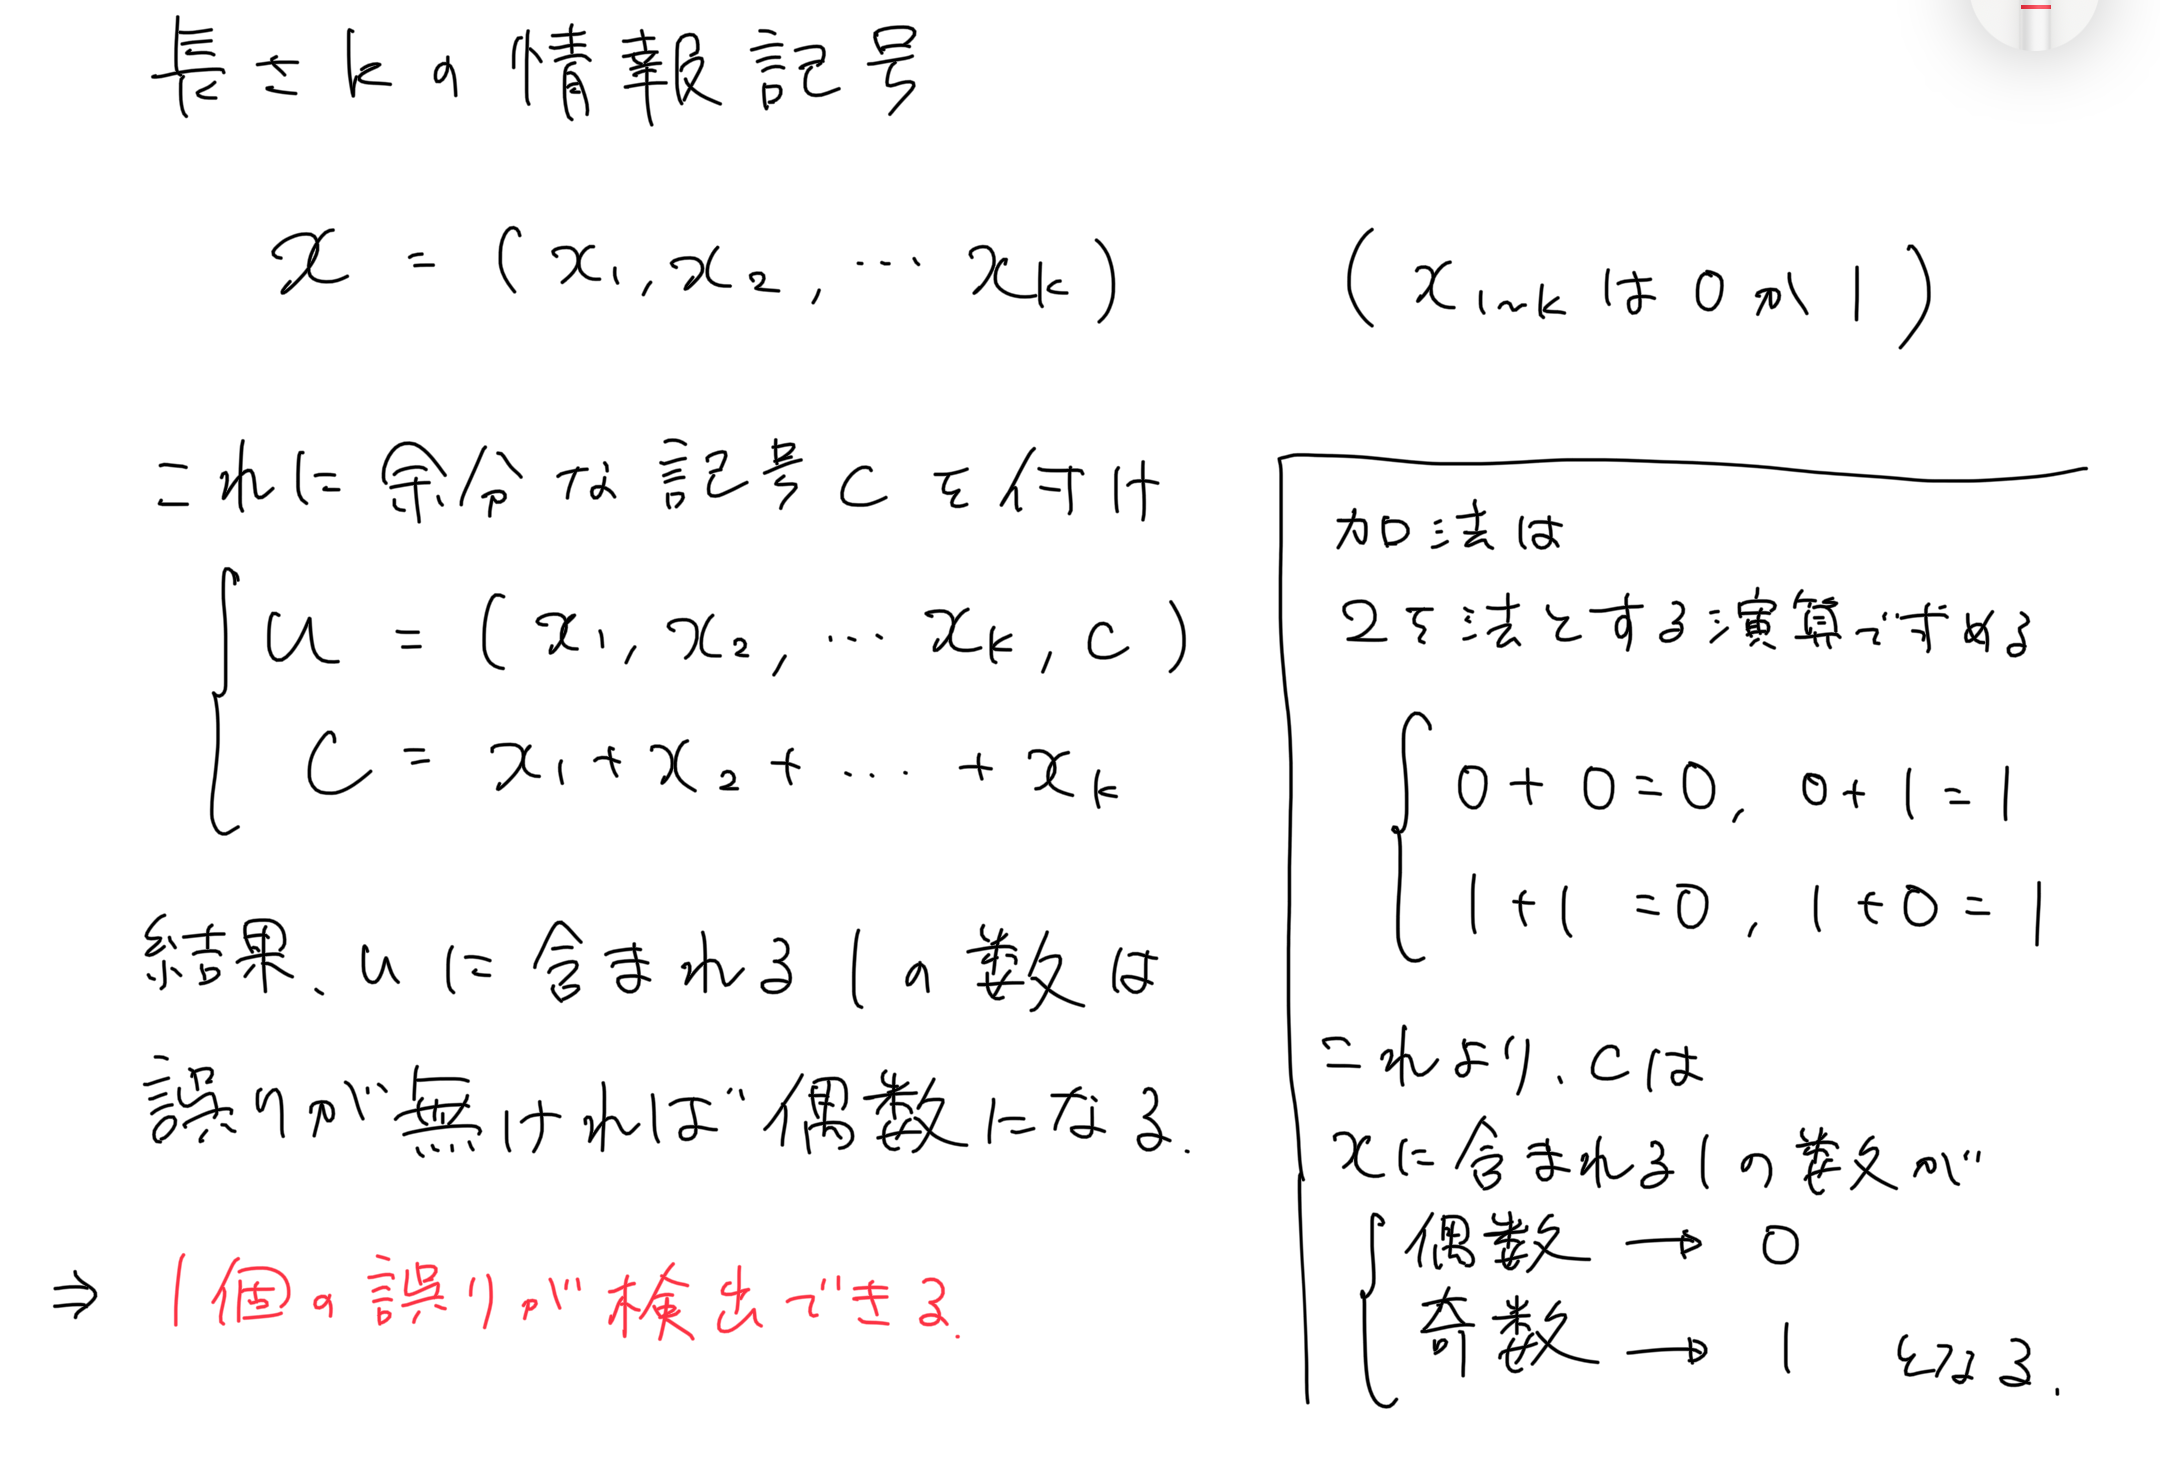 長さkの情報記号
x = (x₁, x₂, … xₖ) (x₁~ₖ は 0か1)
これに余分な記号cを付け
u = (x₁, x₂, … xₖ, c)
c = x₁ + x₂ + … + xₖ
結果、uに含まれる1の数は
誤りが無ければ偶数になる.
⇒ 1個の誤りが検出できる.
加法は
2を法とする演算ですすめる
0 + 0 = 0, 0 + 1 = 1
1 + 1 = 0, 1 + 0 = 1
これより、cは
xに含まれる1の数が
偶数 → 0
奇数 → 1 となる.